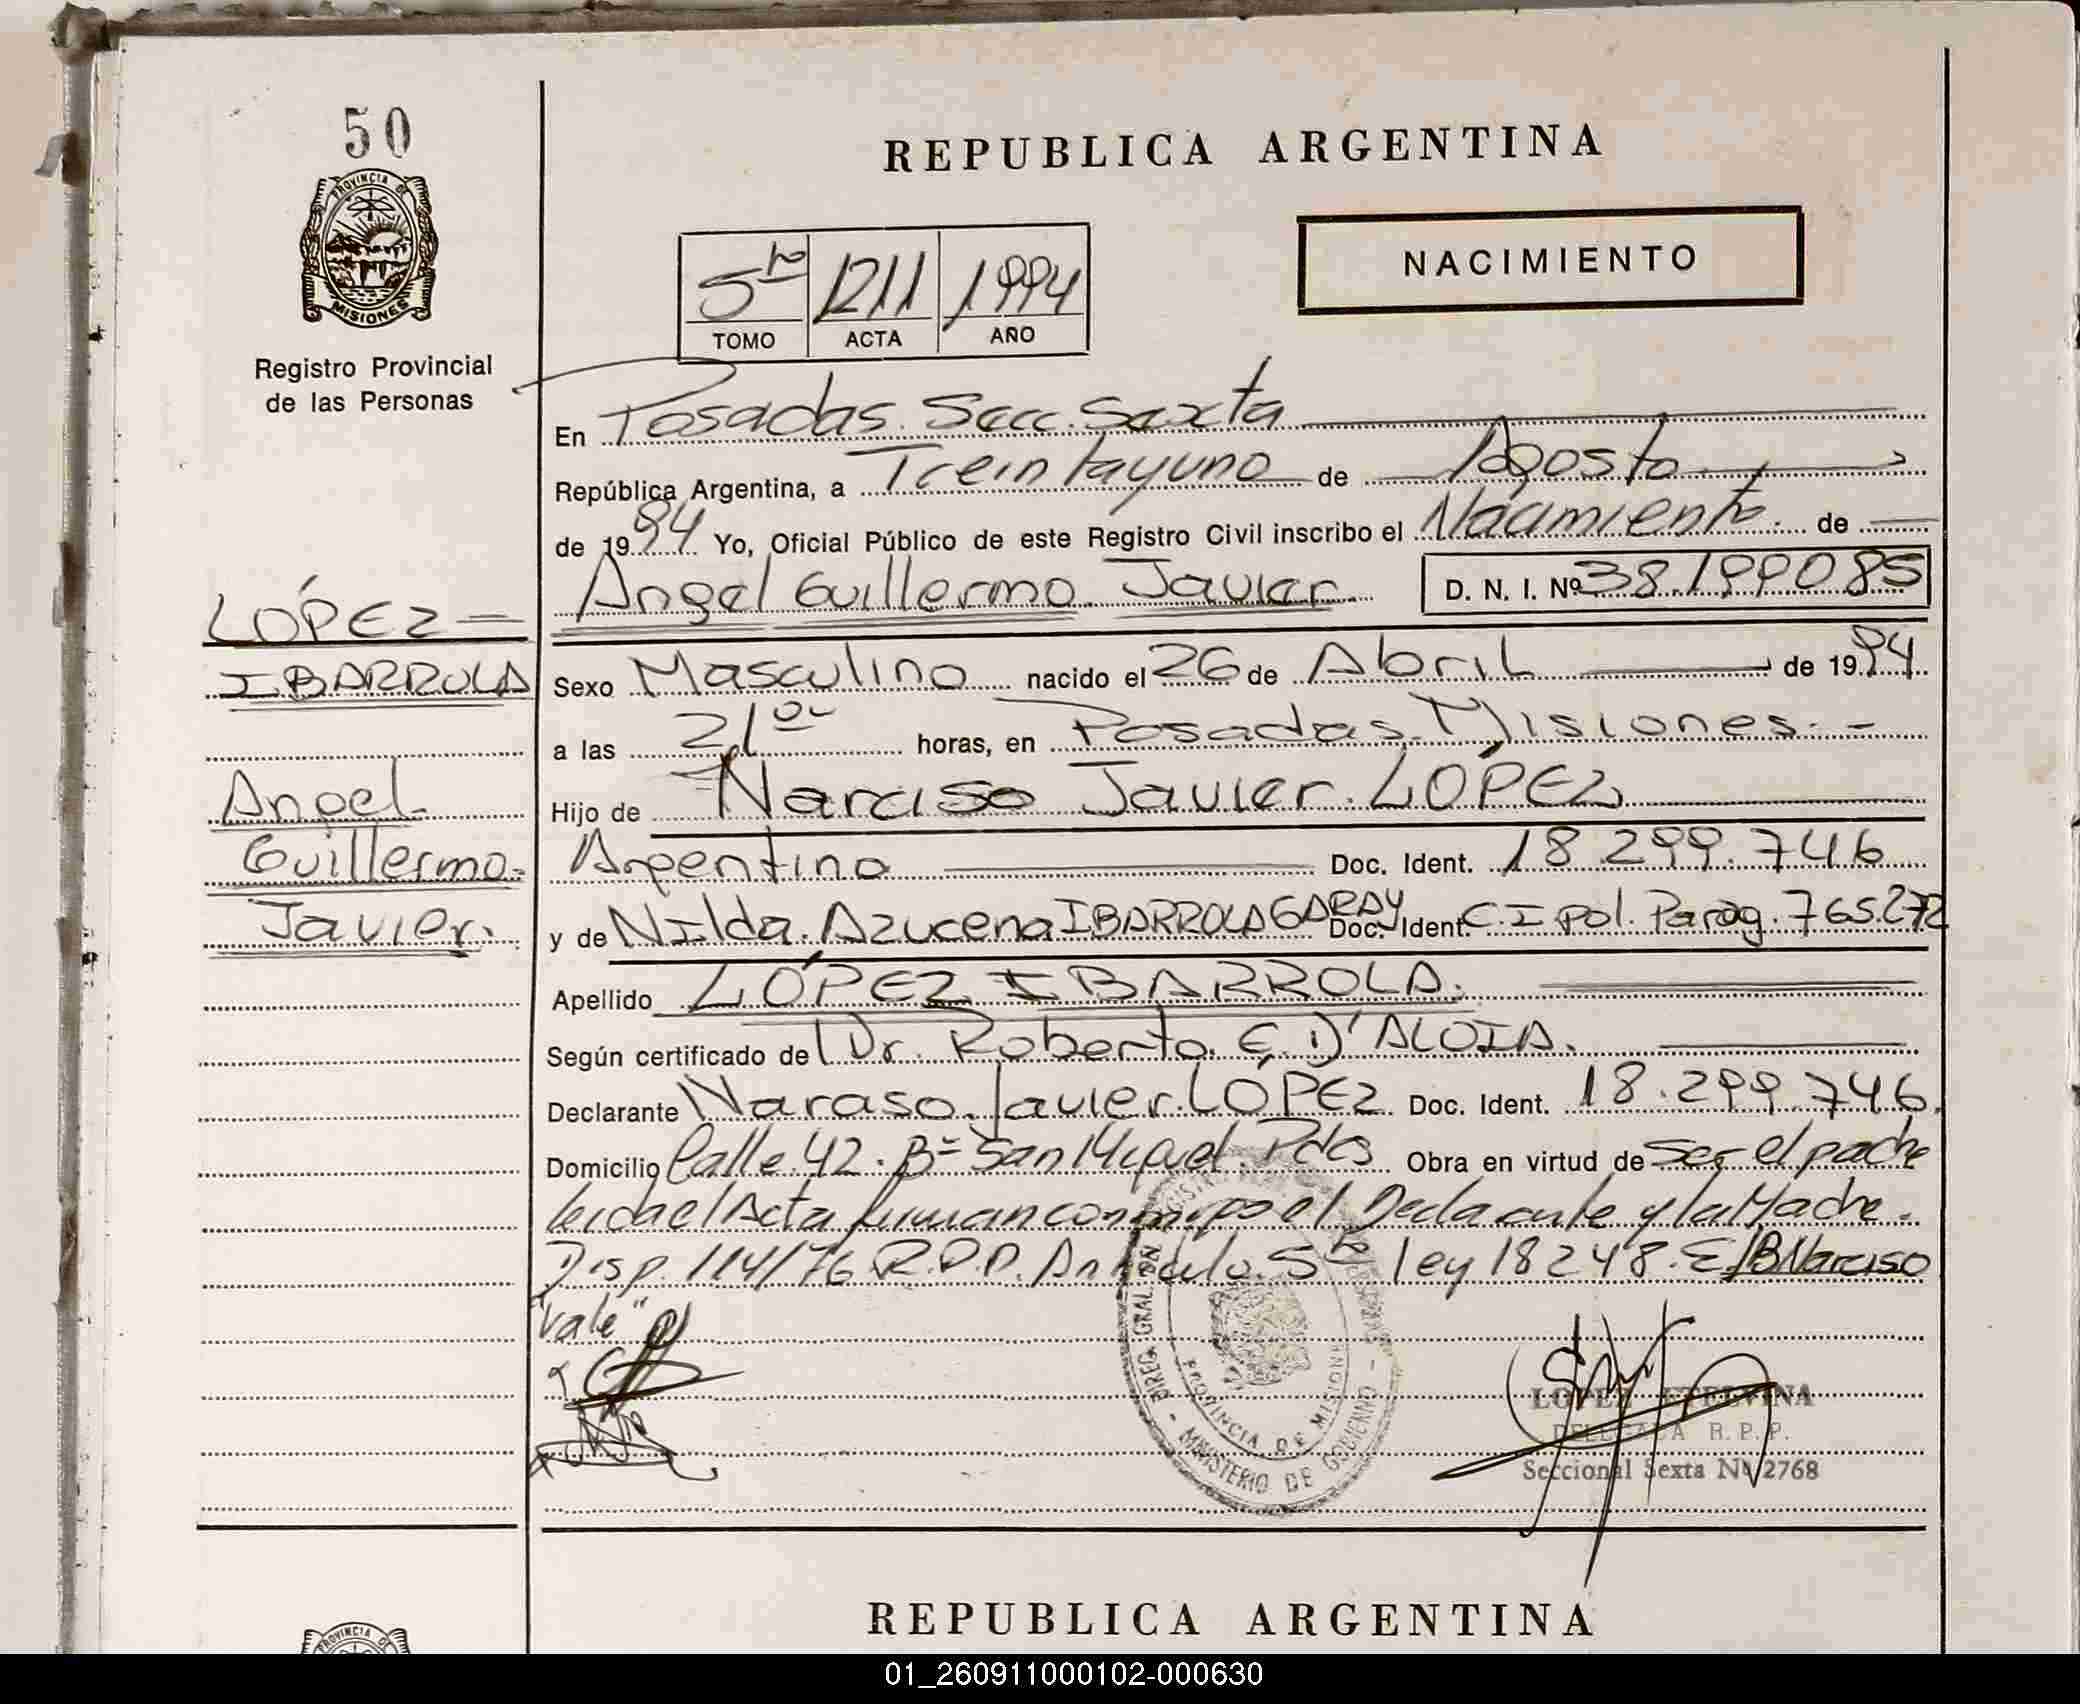 50
PROVINCIA DE
MISIONES
Registro Provincial
de las Personas
REPUBLICA ARGENTINA
NACIMIENTO
5to 1211 1994
TOMO ACTA AÑO
En Posadas. Secc. Sexta
República Argentina, a Treintayuno de Agosto
de 1994 Yo, Oficial Público de este Registro Civil inscribo el Nacimiento. de
Angel Guillermo Javier. D. N. I. Nº 38.199085
LÓPEZ -
IBARROLA
Angel
Guillermo-
Javier.
Sexo Masculino nacido el 26 de Abril de 1994
a las 21 horas, en Posadas. Misiones. -
Hijo de Narciso Javier. LÓPEZ
Argentino Doc. Ident. 18.299.746
y de Nilda. Azucena IBARROLA GARAY Doc. Ident. C. I pol. Parag. 765.272
Apellido LÓPEZ IBARROLA.
Según certificado de Dr. Roberto. E. D'ALOIA.
Declarante Narciso. Javier. LÓPEZ Doc. Ident. 18.299.746.
Domicilio Calle. 42. Bº San Miguel. Pdas Obra en virtud de ser el padre
leida el Acta firman conmigo el Declarante y la Madre.
Disp. 114/76 R.P.P. Articulo. 5to ley 18248. E/B Narciso
"Vale"
DIREC. GRAL. DEL REGISTRO PROV. DE LAS PERSONAS - MINISTERIO DE GOBIERNO -
PROVINCIA DE MISIONES
LOPEZ ETELVINA
DELEGADA R. P. P.
Seccional Sexta Nº 2768
REPUBLICA ARGENTINA
PROVINCIA DE
01_260911000102-000630